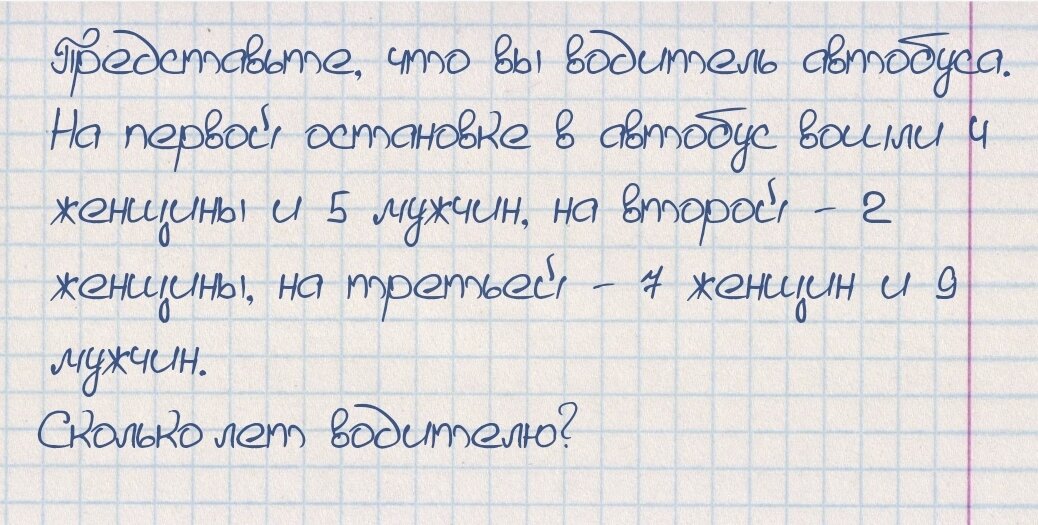 Представьте, что вы водитель автобуса.
На первой остановке в автобус вошли 4
женщины и 5 мужчин, на второй - 2
женщины, на третьей - 7 женщин и 9
мужчин.
Сколько лет водителю?